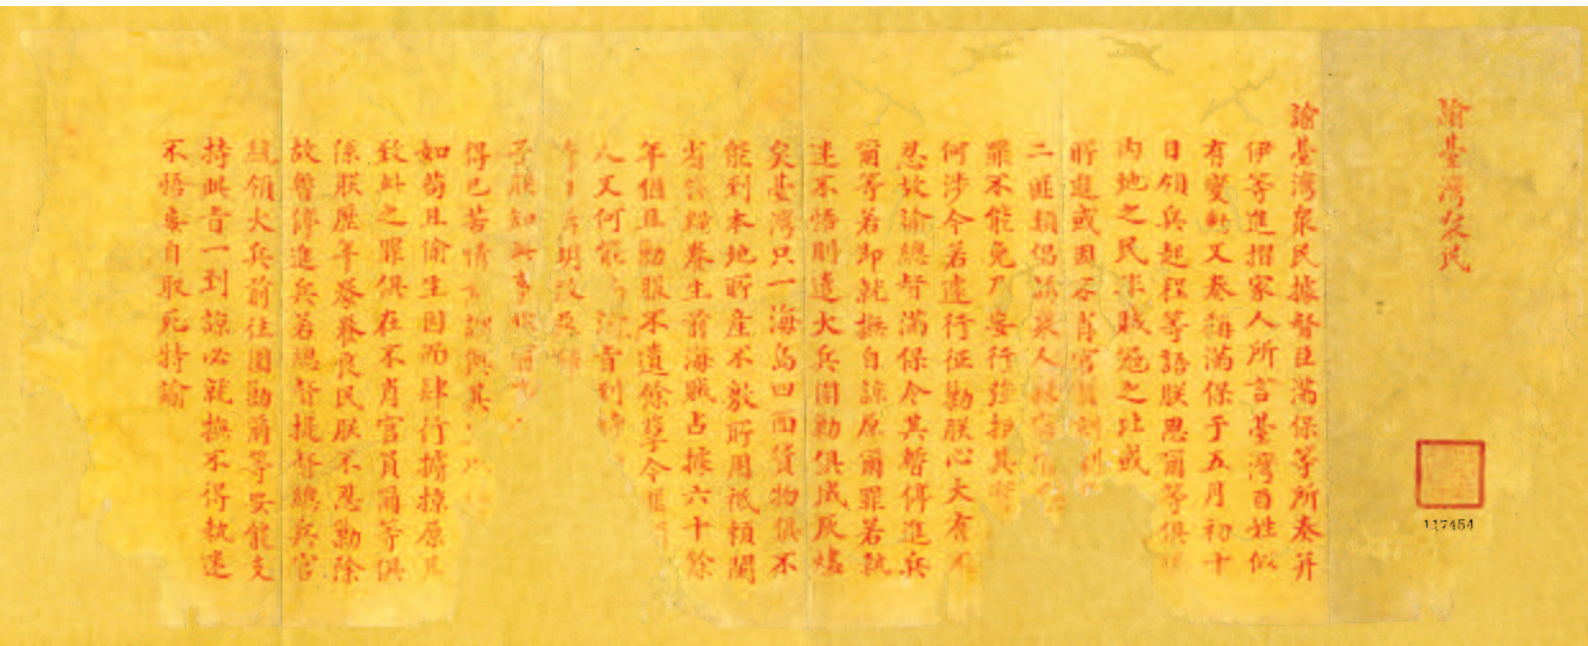 諭臺灣眾民
117454
諭臺灣眾民據督臣滿保等所奏并
伊等進摺家人所言臺灣百姓似
有變動又奏稱滿保于五月初十
日領兵起程等語朕思爾等俱係
內地之民非賊寇之比或
所迫或因不肖官員刻剝
二匪類倡誘眾人
罪不能免乃妄行強拒其
何涉今若遽行征勦朕心大有不
忍故諭總督滿保令其暫停進兵
爾等若即就撫自諒原爾罪若執
迷不悟則遣大兵圍勦俱成灰燼
矣臺灣只一海島四面貨物俱不
能到本地所産不敷所用祇賴閩
省 養生前海賊占據六十餘
年猶且勦服不遺餘孽今
人又何能 旨到
明
朕知此事
得已苦情 其
如苟且偷生因而肆行擄掠原其
致此之罪俱在不肖官員爾等俱
係朕歷年豢養良民朕不忍勦除
故暫停進兵若總督提督總兵官
統領大兵前往圍勦爾等安能支
持此旨一到諒必就撫不得執迷
不悟妄自取死特諭